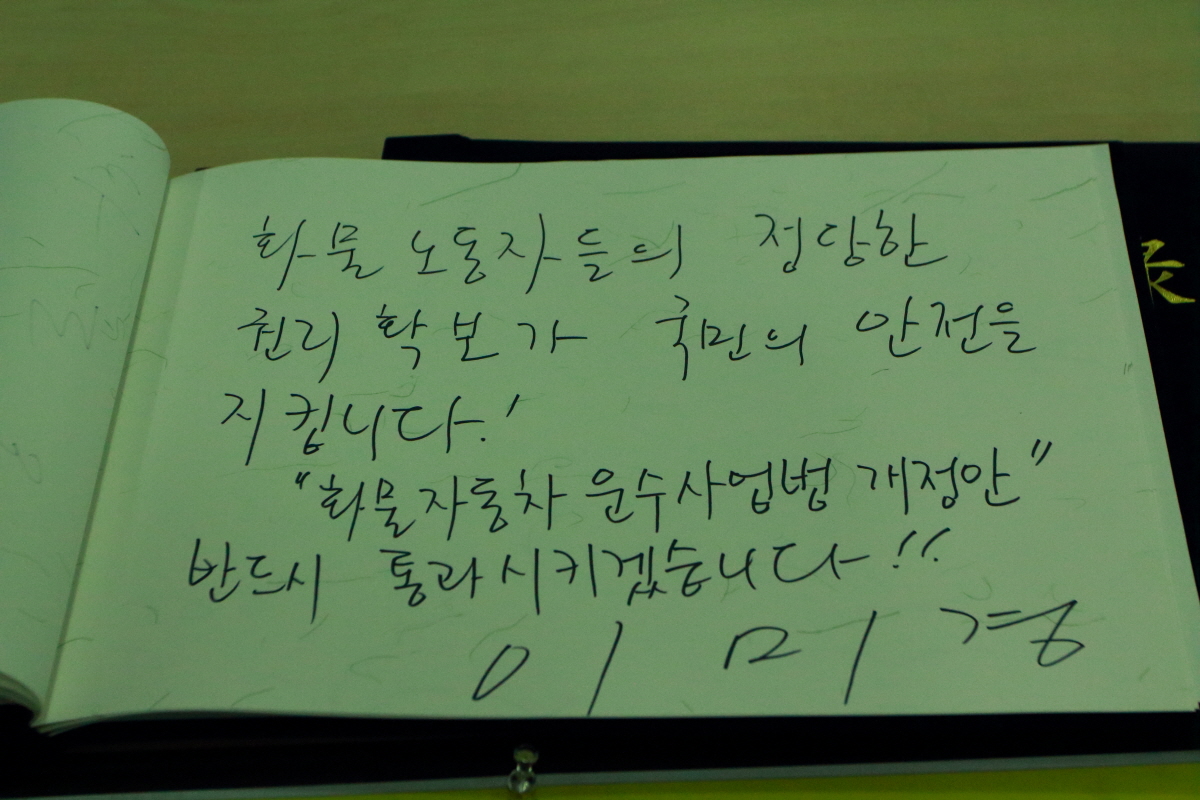 화물 노동자들의 정당한
권리 확보가 국민의 안전을
지킵니다.!
"화물자동차 운수사업법 개정안"
반드시 통과시키겠습니다!!
이 미 경